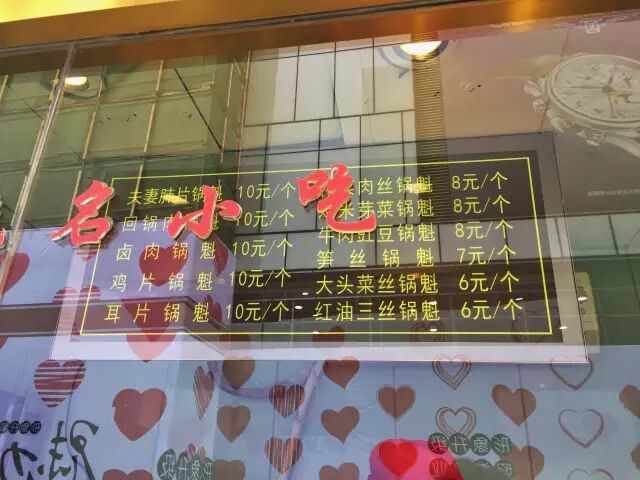 名小吃
夫妻肺片锅魁 10元/个
回锅肉锅魁 10元/个
卤肉锅魁 10元/个
鸡片锅魁 10元/个
耳片锅魁 10元/个
肉丝锅魁 8元/个
米芽菜锅魁 8元/个
牛肉豇豆锅魁 8元/个
笋丝锅魁 7元/个
大头菜丝锅魁 6元/个
红油三丝锅魁 6元/个
形象升级
形象升级
形象升